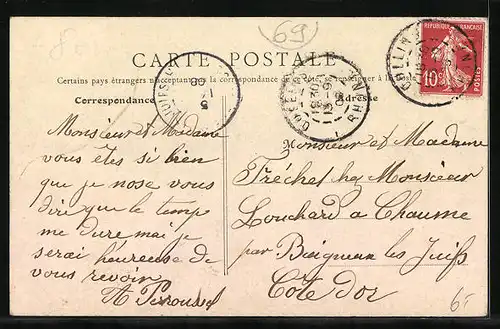 69
RÉPUBLIQUE FRANÇAISE
10c
CARTE POSTALE
Certains pays étrangers n'acceptent pas la correspondance de ce côté, se renseigner à la Poste
Correspondance
Adresse
Monsieur et Madame
vous êtes si bien
que je nose vous
dire que le temp
me dure mai je
serai heureuse de
vous revoir
Monsieur et Madame
Tréchet chez Monsieur
Louchard a Chaume
par Baigneux les Juifs
Côte d'or